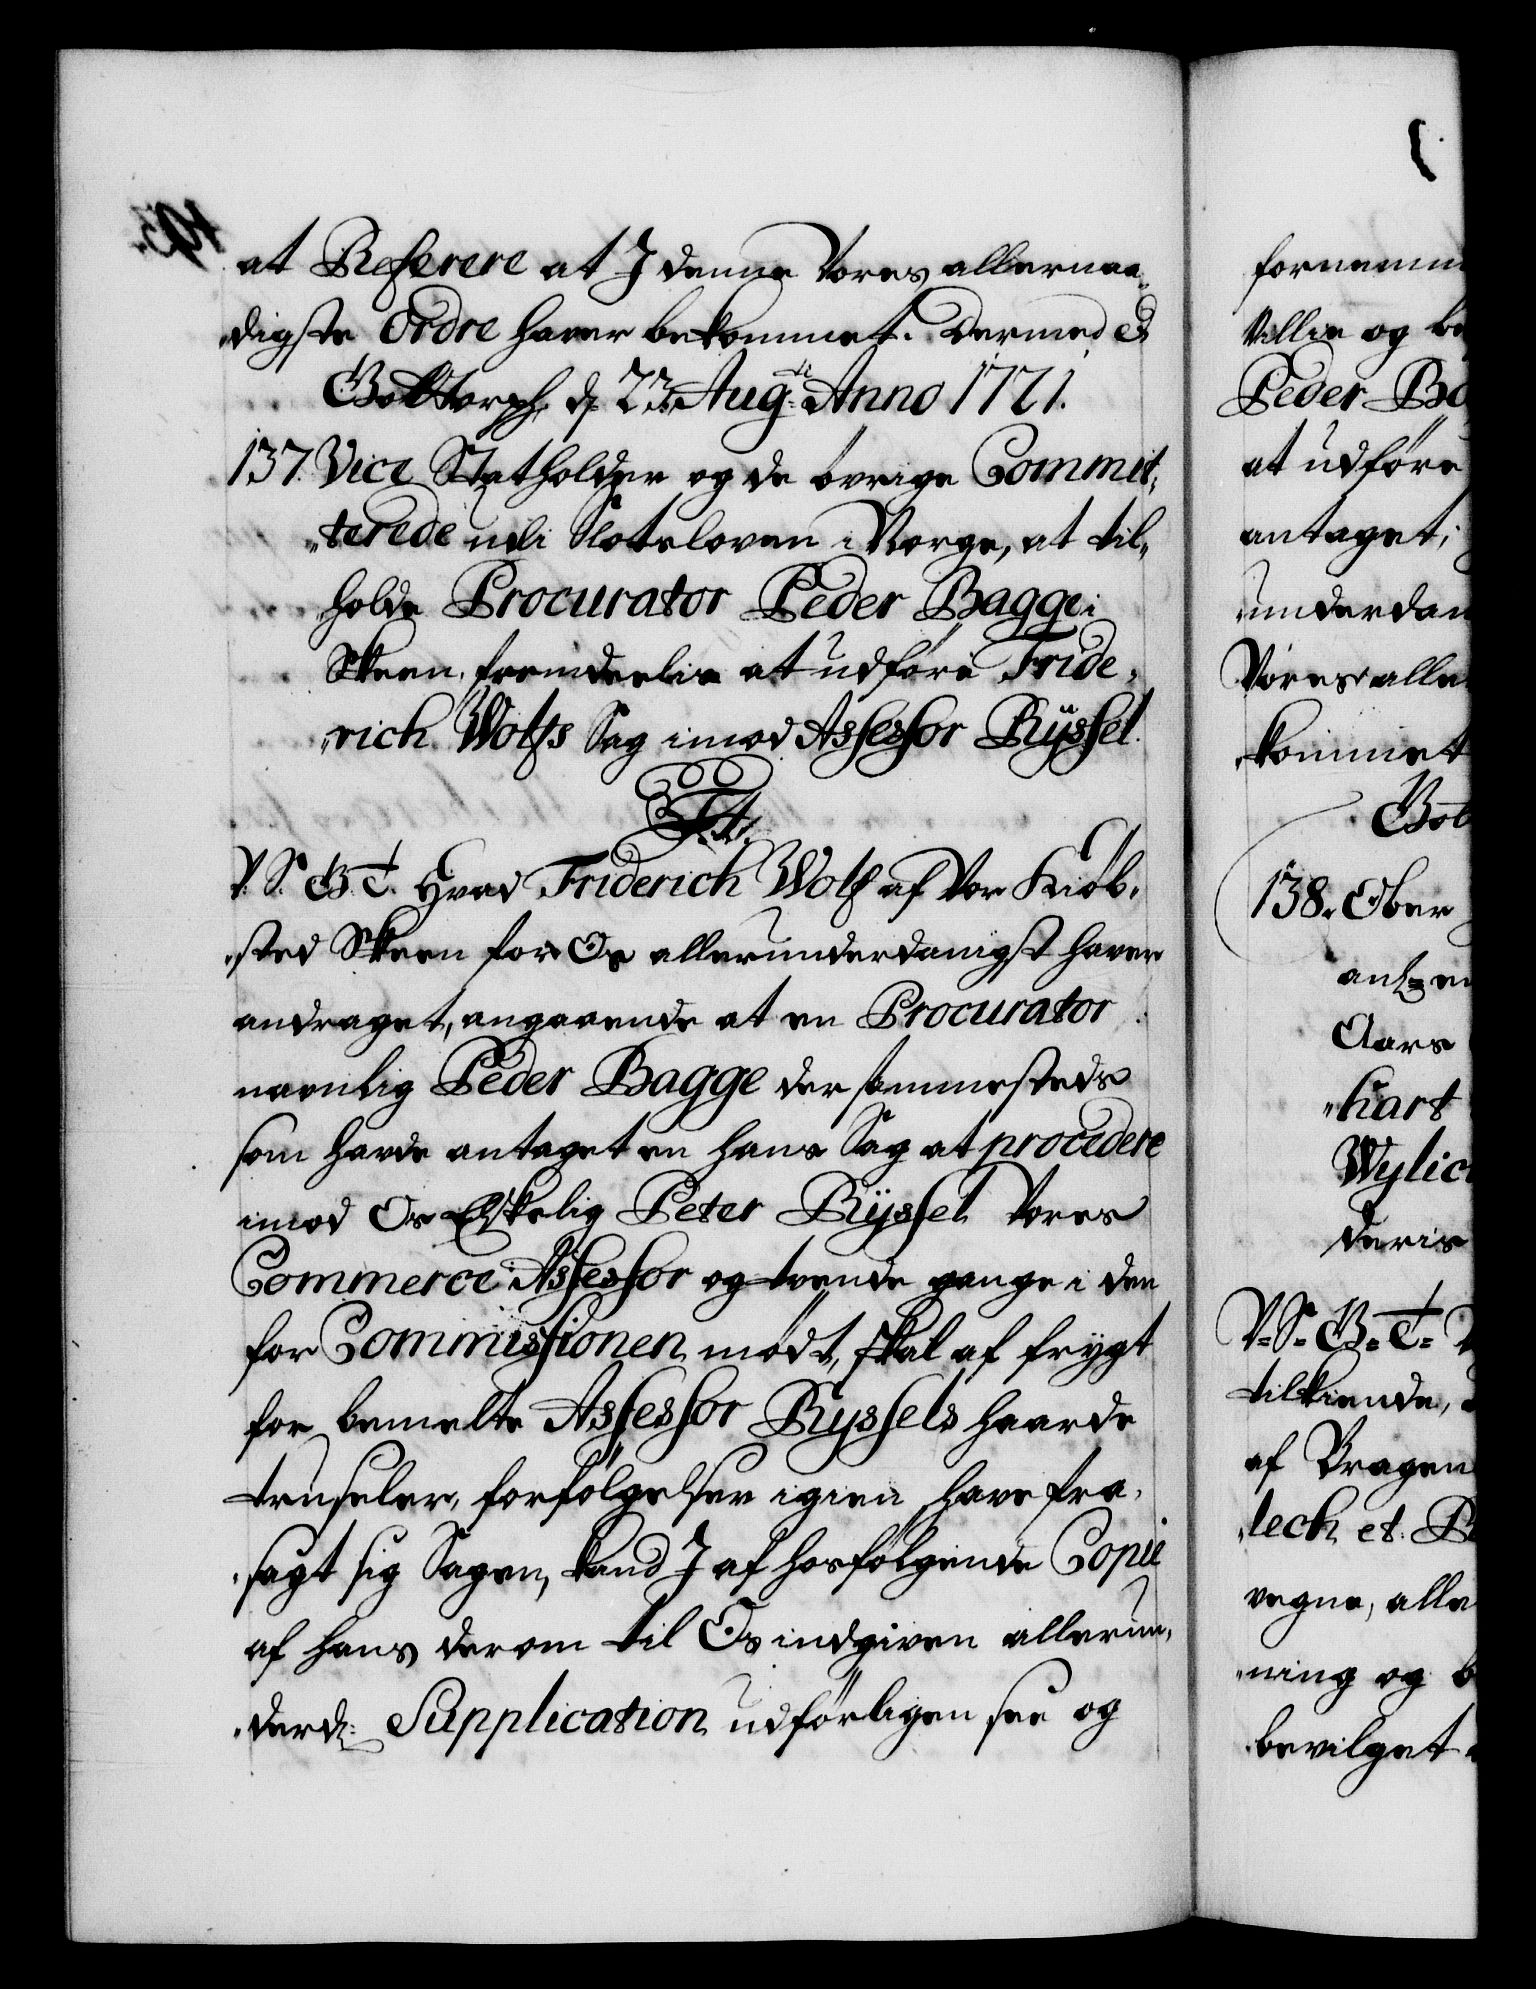 at Referere at I denne Vores allernaa-
digste Ordre haver bekommet. Dermed &
Gottorph, d. 23. Aug: Anno 1721.
137. Vice Statholder og de øvrige Commit-
terede udi Slotsloven i Norge, at til-
holde Procurator Peder Bagge i
Skeen, fremdeelis at udføre Fride-
rich Wolfs Sag imod Assessor Rÿssel.
F. 4.
V. S. G. T. Hvad Friderich Wolf af Vor Kiøb-
sted Skeen for Os allerunderdanigst haver
andraget, angaaende at en Procurator
navnlig Peder Bagge der sammesteds
som hafde antaget en hans Sag at procedere
imod Os Elskelig Peter Rÿssel Vores
Commerce Assessor og trende gange i den
for Commissionen mødt, skal af frygt
for bemelte Assessor Ryssels haarde
truseler, forfølgelser igien have fra-
sagt sig Sagen, kand I af hosfølgende Copie
af hans derom til Os indgiven allerun-
derd: Supplication udførligen see og
fornemme
Villie og be
Peder Ba
at udføre
antaget,
underdan
Vores alle
kommet
Got
138. Ober
Aars
hart
Wylic
deris
V. S. G. T.
tilkiende,
af Bragen
lech et. P
vegne, alle
ning og b
bevilget